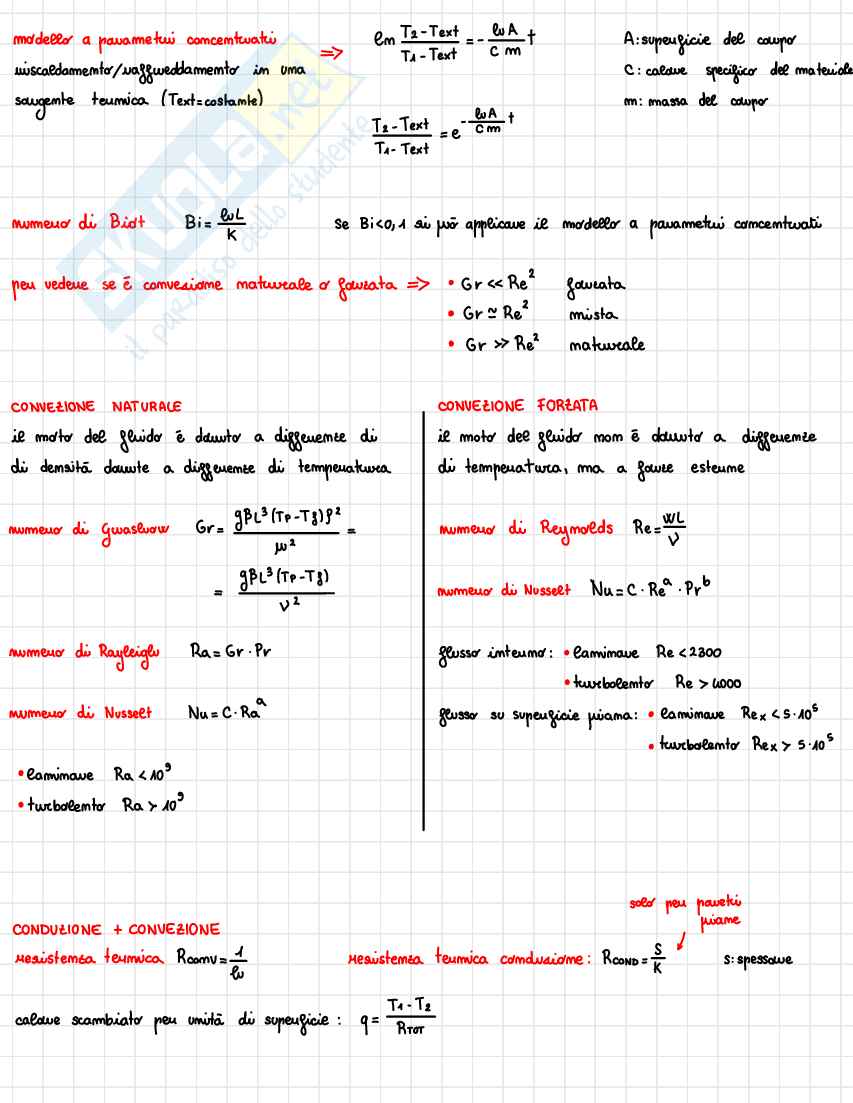 modello a parametri concentrati => ln (T2-Text)/(T1-Text) = - (hA)/(c m) t A: superficie del corpo
riscaldamento/raffreddamento in una C: calore specifico del materiale
sorgente termica (Text=costante) m: massa del corpo
(T2-Text)/(T1-Text) = e^(-(hA)/(cm) t)
SKUOLA.net
il paradiso dello studente
numero di Biot Bi = hL/K Se Bi<0,1 si può applicare il modello a parametri concentrati
per vedere se è convezione naturale o forzata => • Gr << Re² forzata
• Gr ≃ Re² mista
• Gr >> Re² naturale
CONVEZIONE NATURALE
il moto del fluido è dovuto a differenze di
di densità dovute a differenze di temperatura
numero di Grashow Gr = gβL³(Tp-Tf)ρ²/μ² =
= gβL³(Tp-Tf)/ν²
numero di Rayleigh Ra = Gr · Pr
numero di Nusselt Nu = C · Ra^a
• laminare Ra < 10⁹
• turbolento Ra > 10⁹
CONVEZIONE FORZATA
il moto del fluido non è dovuto a differenze
di temperatura, ma a forze esterne
numero di Reynolds Re = WL/ν
numero di Nusselt Nu = C · Re^a · Pr^b
flusso interno: • laminare Re < 2300
• turbolento Re > 4000
flusso su superficie piana: • laminare Rex < 5·10⁵
• turbolento Rex > 5·10⁵
solo per pareti
piane
CONDUZIONE + CONVEZIONE
resistenza termica Rconv = 1/h resistenza termica conduzione: RCOND = S/K s: spessore
calore scambiato per unità di superficie: q = (T1-T2)/RTOT